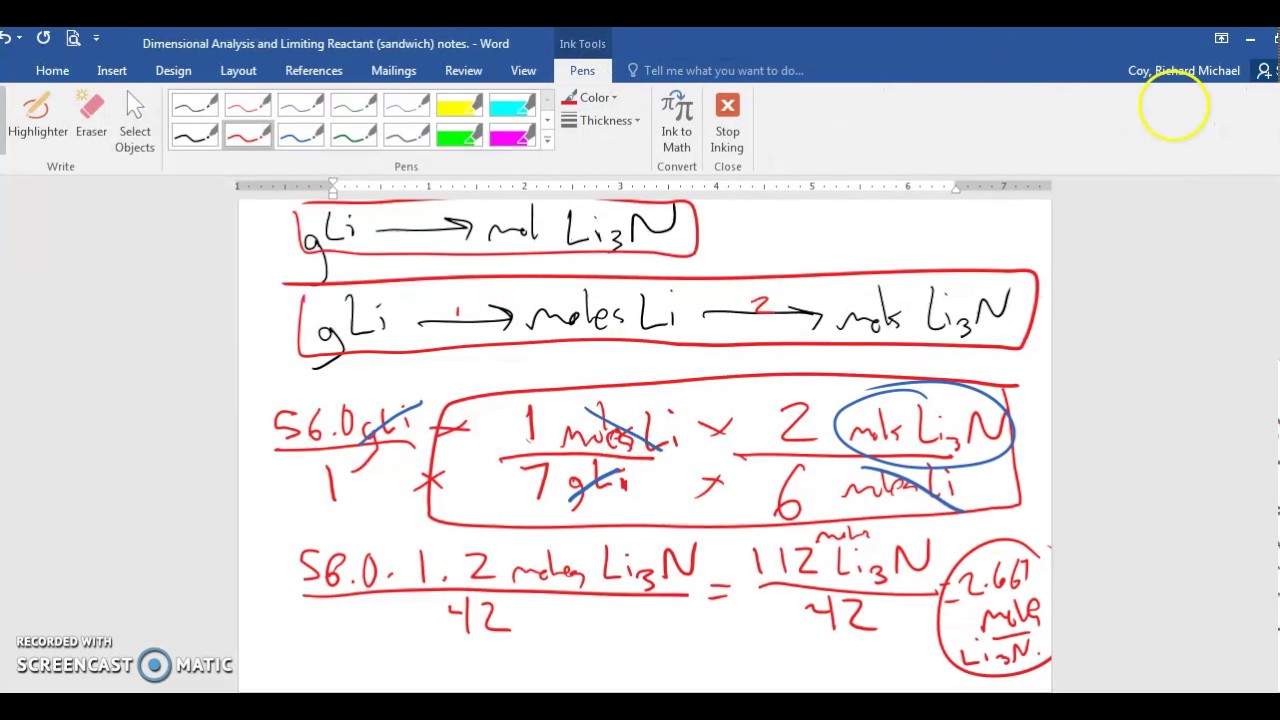 Dimensional Analysis and Limiting Reactant (sandwich) notes. - Word
Ink Tools
Home Insert Design Layout References Mailings Review View Pens Tell me what you want to do... Coy, Richard Michael
Highlighter Eraser Select Objects
Color
Thickness
Ink to Math
Stop Inking
Write Pens Convert Close
1 1 2 3 4 5 6 7
gLi → mol Li₃N
gLi 1→ moles Li 2→ mols Li₃N
56.0gLi × 1 moles Li × 2 mols Li₃N
1 × 7 gLi × 6 moles Li
56.0 · 1 . 2 moles Li₃N = 112 mols Li₃N = 2.667 moles Li₃N.
42 42
RECORDED WITH
SCREENCAST MATIC